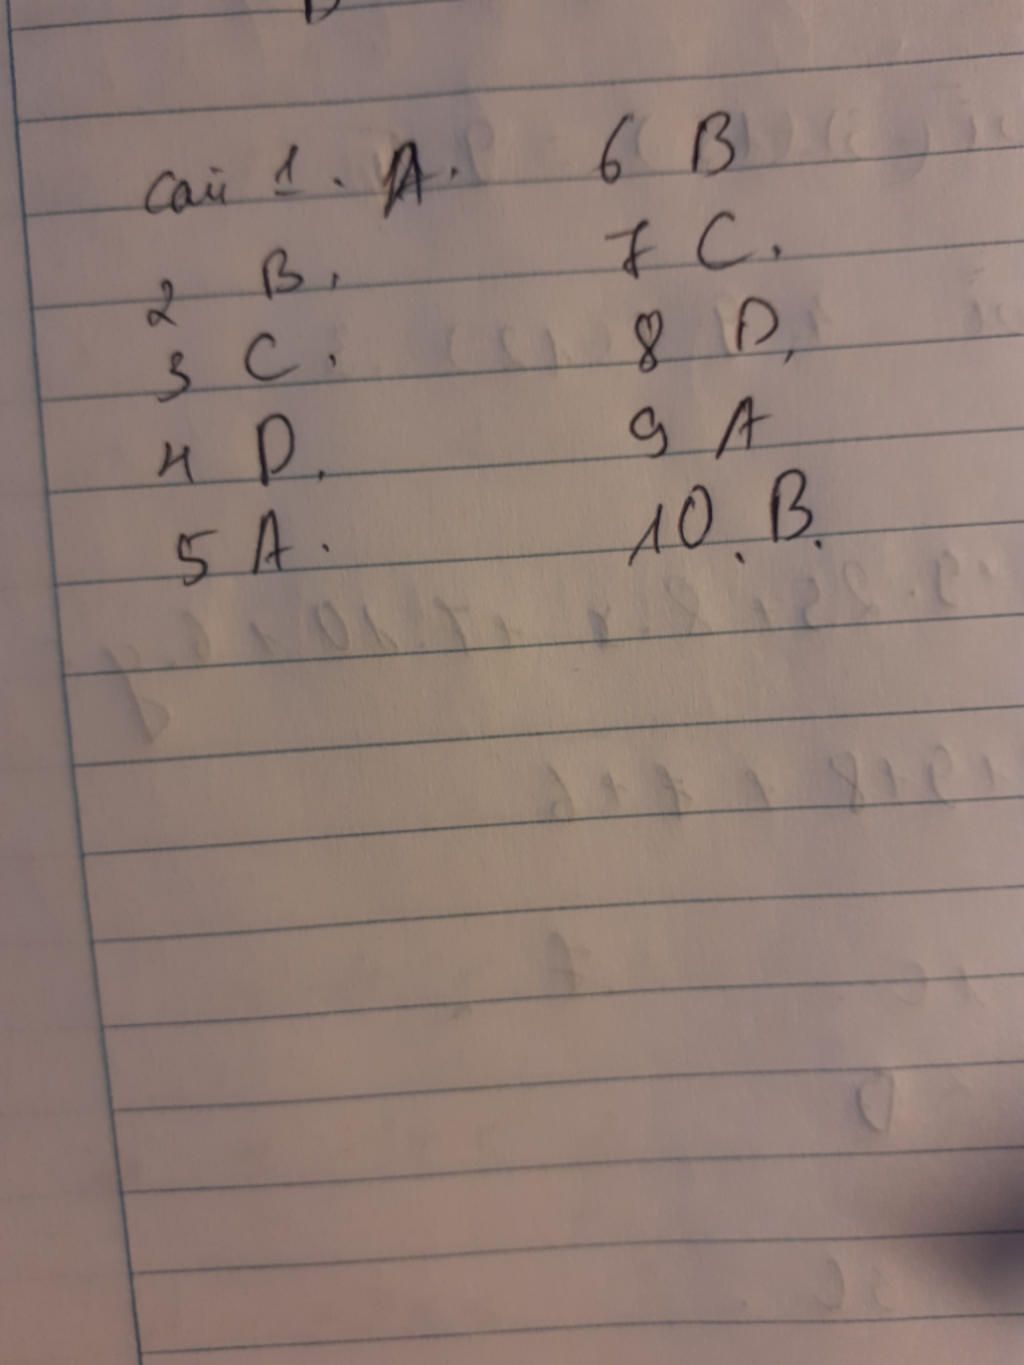 Câu 1. A.
2 B.
3 C.
4 D.
5 A.
6 B
7 C.
8 D.
9 A
10. B.